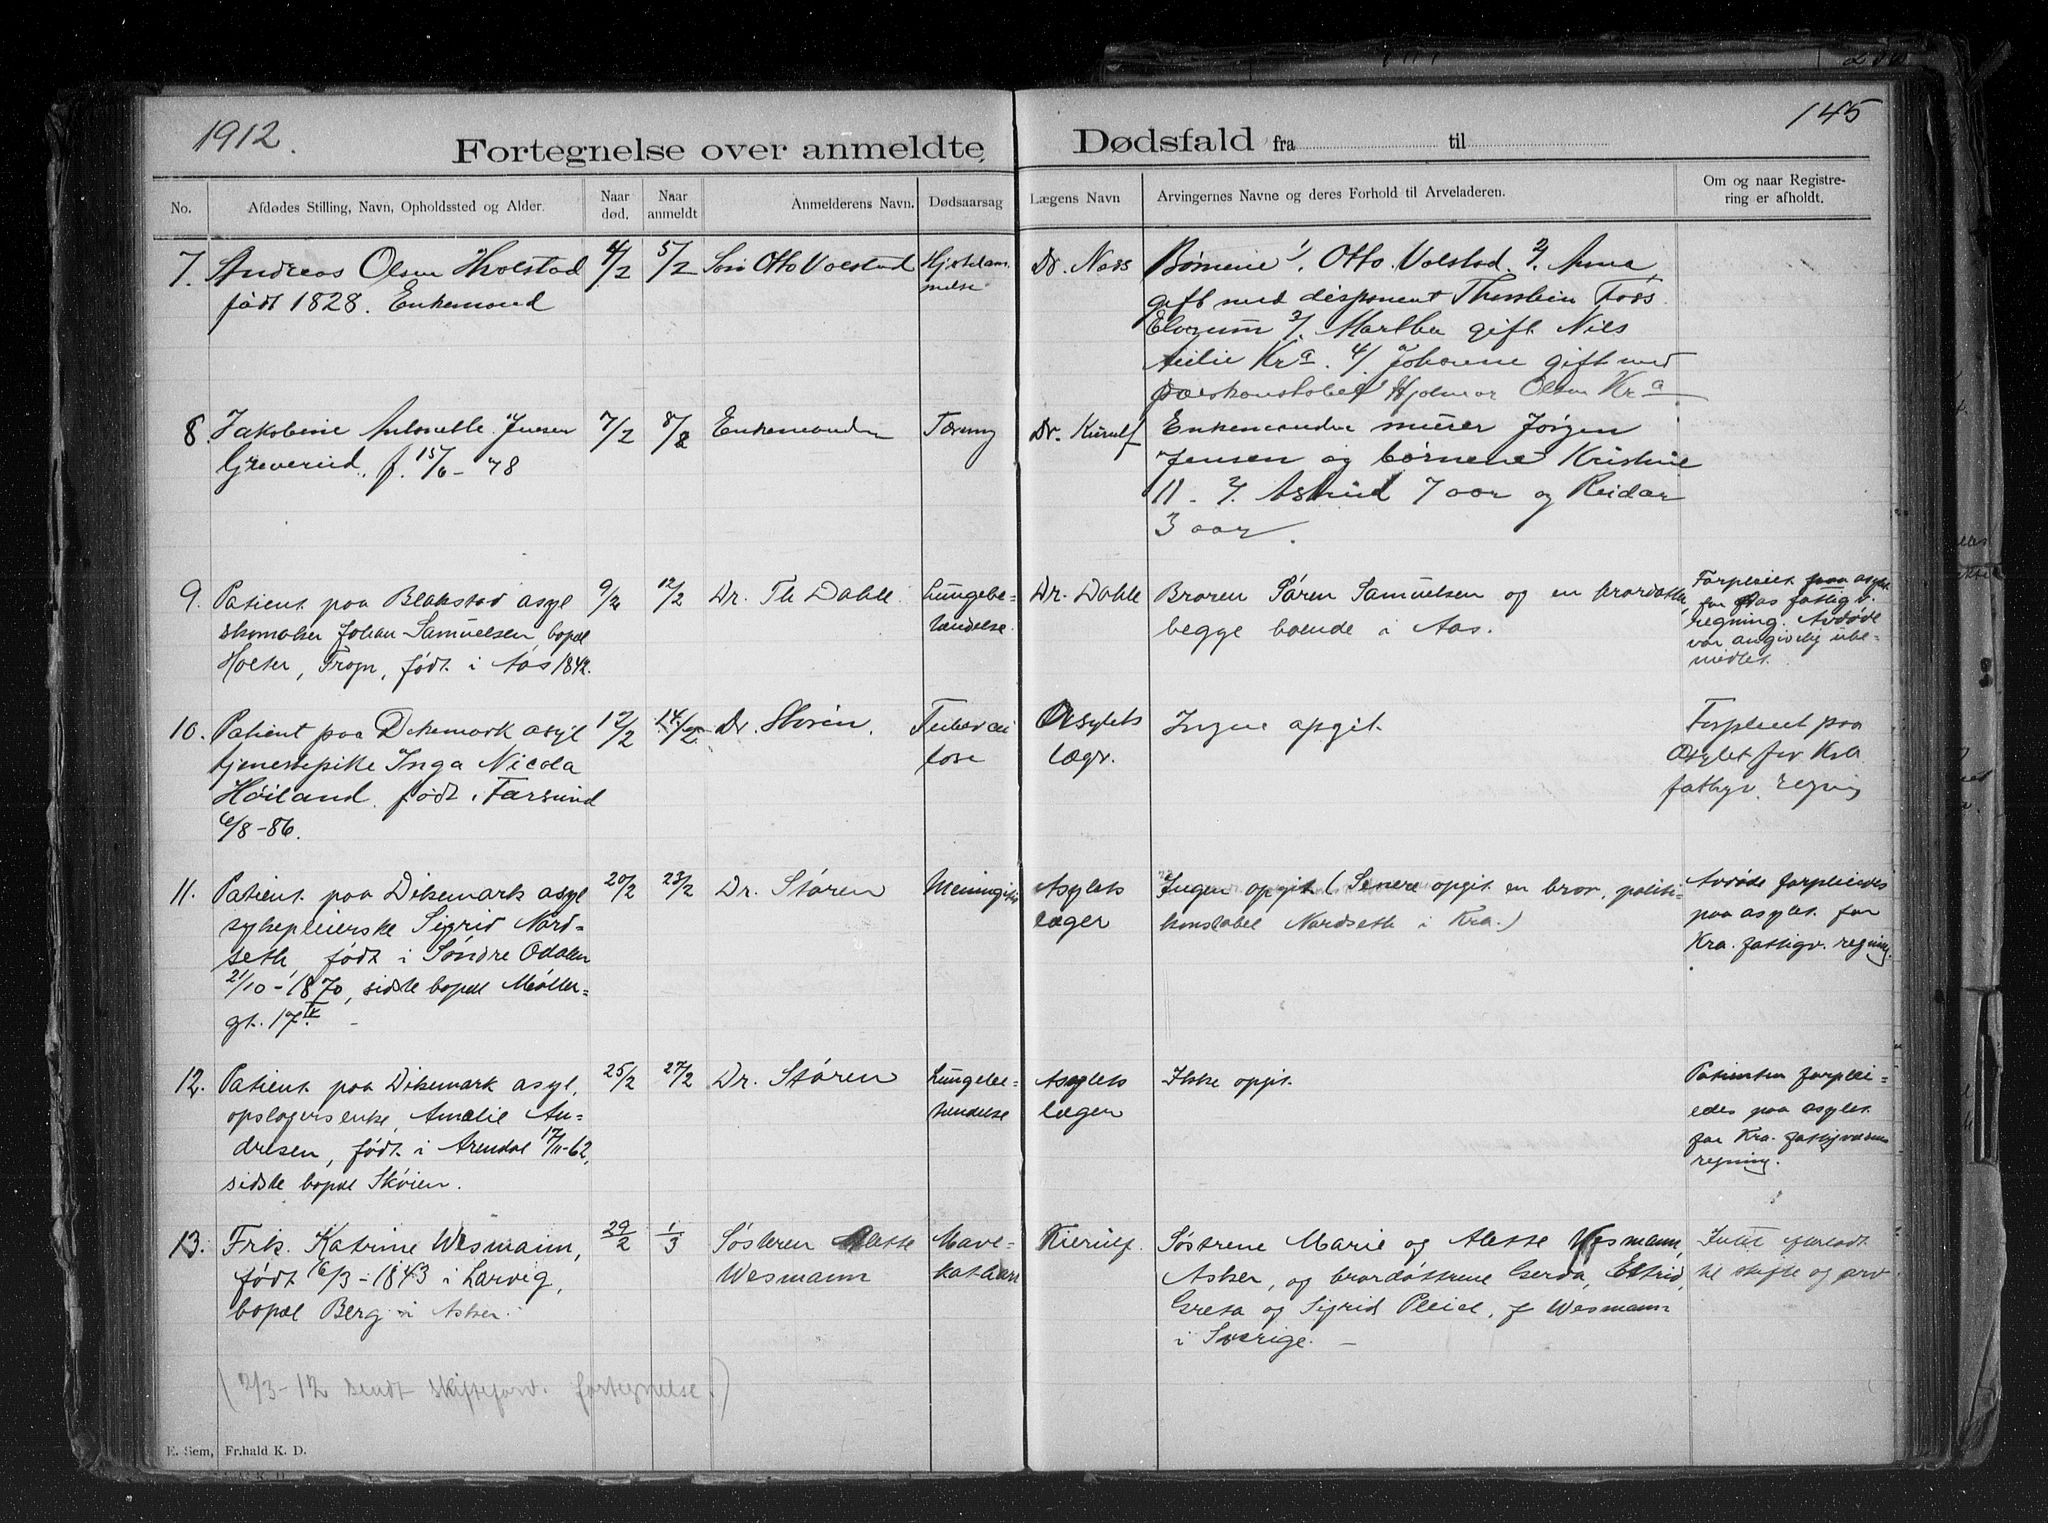 1912.
145
Fortegnelse over anmeldte Dødsfald fra til
No.
Afdødes Stilling, Navn, Opholdssted og Alder.
Naar død.
Naar anmeldt
Anmelderens Navn.
Dødsaarsag
Lægens Navn
Arvingernes Navne og deres Forhold til Arveladeren.
Om og naar Registre-
ring er afholdt.
7. Andreas Olsen Hvalstad
født 1828. Enkemand
4/2
5/2
Søn Otto Valstad
Dr. Naas
Børnene 1/. Otto Valstad. 2/. Anna
gift med disponent Thorstein Foss
Elverum 3/. Martha gift Nils
Kra. 4/ Johanne gift med
politikonstabel Hjalmar Olsen Kra.
8. Jakobine Antonette Jensen
Greverud, f. 15/6-78
7/2
8/2
Enkemanden
Tæring
Dr. Kierulf
Enkemanden murer Jørgen
Jensen og børnene Kristine
11. Astrid 7 aar og Reidar
3 aar.
9. Patient paa Blakstad asyl
skomaker Johan Samuelsen, bopæl
Holter, Frogn, født i Aas 1842.
9/2
12/2
Dr. Th Dahle
Lungebe-
tændelse.
Dr. Dahle
Broren Søren Samuelsen og en brordatter,
begge boende i Aas.
Forpleiet paa asylet
for Aas fattigv.
regning. Avdøde
var angivelig ube-
midlet.
10. Patient paa Dikemark asyl
tjenestepike Inga Nicola
Høiland, født i Farsund
6/8-86.
12/2
14/2
Dr. Støren.
Tuberku
lose
Asylets
læge.
Ingen opgit.
Forpleiet paa
Asylet for Kra
fattigv. regning
11. Patient paa Dikemark asyl
sykepleierske Sigrid Nord-
seth, født i Søndre Odalen
21/10-1870, sidste bopæl Møller-
gt. 17 IV. -
20/2
23/2
Dr. Støren
Meningitis
Asylets
læger
Ingen opgit (Senere opgit en bror, politi-
konstabel Nordseth i Kra.)
Avdøde forpleiedes
paa asylet for
Kra. fattigv. regning.
12. Patient paa Dikemark asyl,
opslagersenke, Amalie An-
dresen, født i Arendal 17/11-62,
sidste bopæl Skøien.
25/2
27/2
Dr. Støren
Lungebe-
tændelse
Asylets
lægen
Ikke opgit.
Patienten forplei-
edes paa asylet
for Kra. fattigvæsens
regning.
13. Frk. Katrine Wesmann,
født 16/3-1843 i Larvig,
bopæl Berg i Asker.
29/2
1/3
Søsteren Alette
Wesmann
Mave-
katharr
Kierulf.
Søstrene Marie og Alette Wesmann,
Asker, og brordøttrene Gerda, Estrid,
Greta og Sigrid Pleiel, f Wesmann
i Sverige. -
Intet
til skifte og
(2/3-12 sendt skifteforv. fortegnelse.)
E. Sem, Fr.hald K. D.